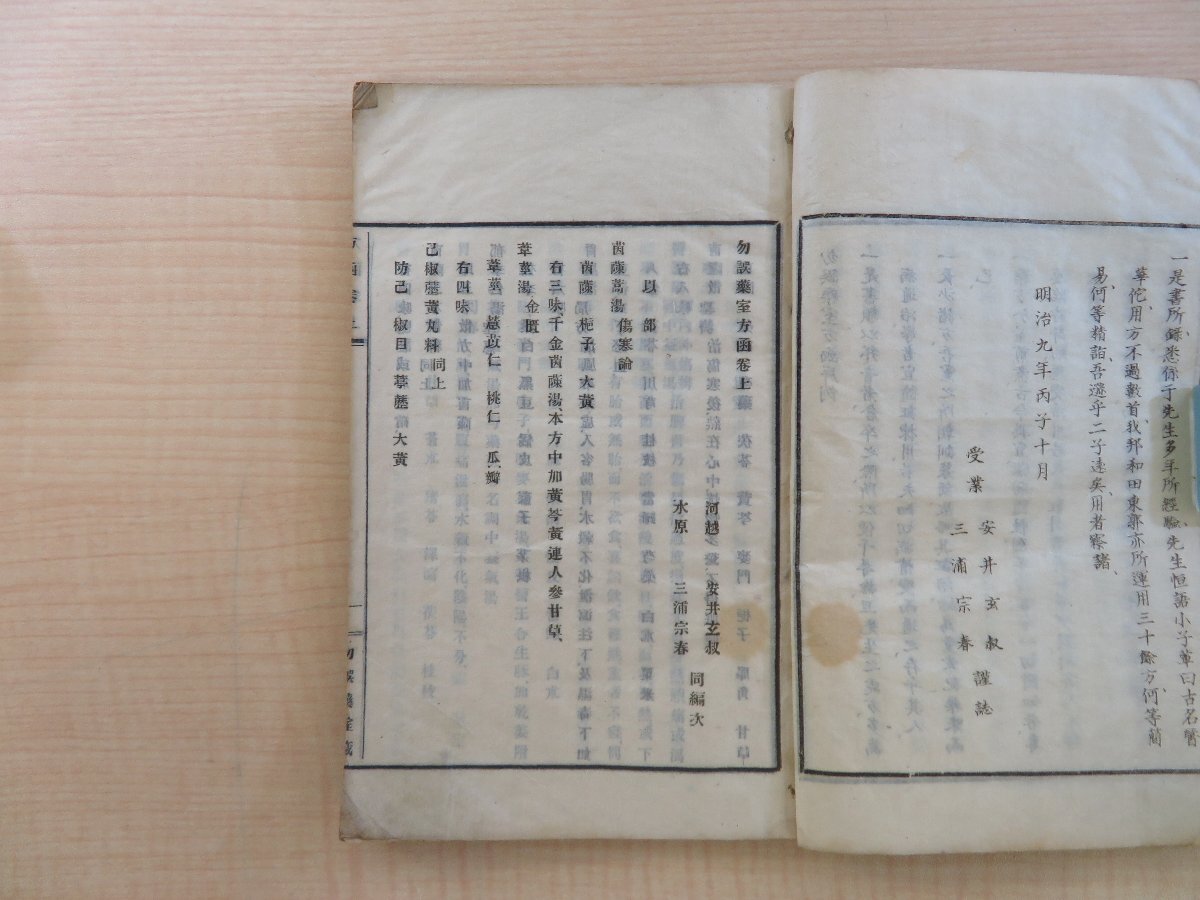 一是書所錄悉係于先生多年所經驗先生恒語小子輩曰古名醫
華佗用方不過數首我邦和田東郭亦所運用三十餘方何等簡
易何等精詣吾邊乎二子遠矣用者察諸
明治九年丙子十月
受業 安井玄叔 謹誌
三浦宗春
勿誤藥室方函卷上
河越 安井玄叔
水原 三浦宗春 同編次
以部
茵蔯蒿湯 傷寒論
茵蔯 梔子 大黃
右三味千金茵蔯湯本方中加黃芩黃連人參甘草
葦莖湯 金匱
葦莖 薏苡仁 桃仁 瓜瓣
右四味
己椒藶黃丸料 同上
防己 椒目 葶藶 大黃
勿誤藥室藏